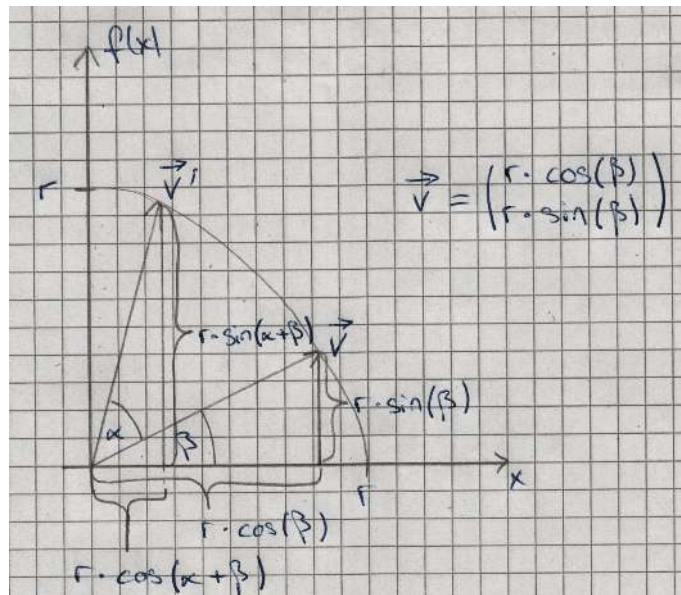 f(x)
r
v⃗'
v⃗ = ( r · cos(β)
r · sin(β) )
r · sin(α+β)
v⃗
r · sin(β)
α
β
x
r
r · cos(β)
r · cos(α + β)